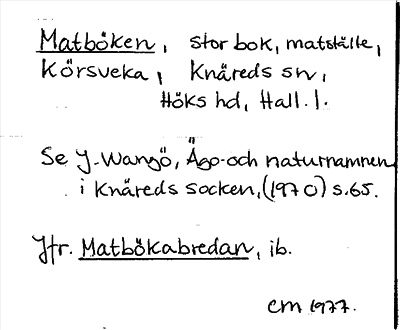 Matböken, stor bok, matställe,
Körsveka, Knäreds sn,
Höks hd, Hall. l.
Se J. Wangö, Ägo- och naturnamnen
i Knäreds socken, (1970) s. 65.
Jfr. Matbökabredan, ib.
CM 1977.